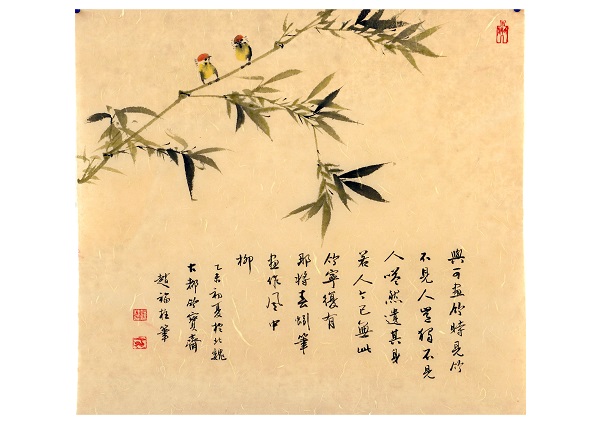 與可画竹時見竹
不見人豈獨不見
人嗒然遺其身
若人今已無此
竹寧復有
那将春蚓筆
画作風中
柳
乙未初夏於北魏
古都竹寶齋
趙福柱筆